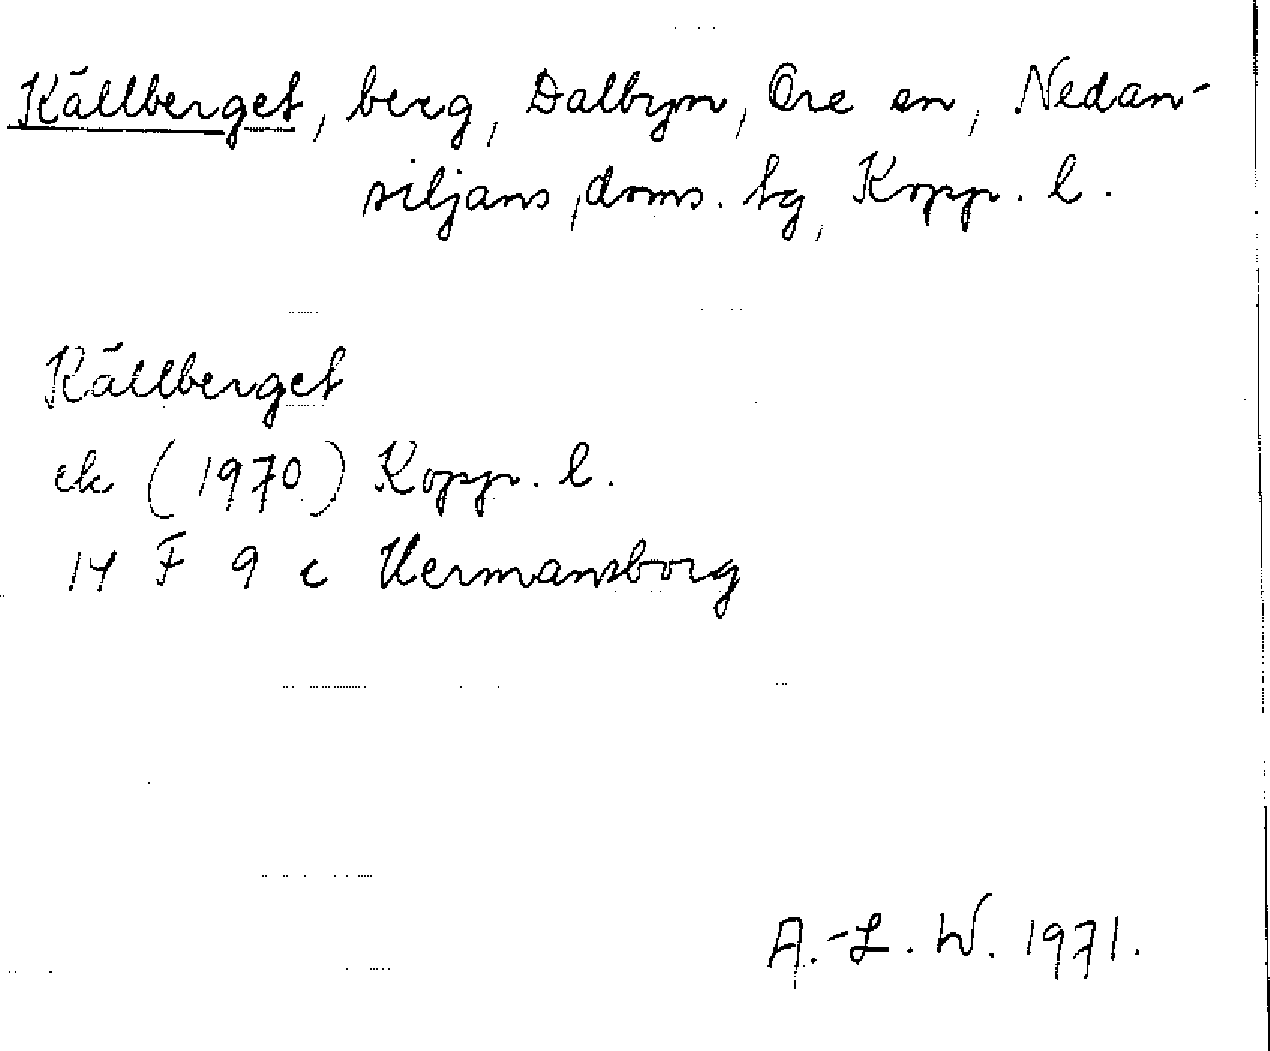 Källberget, berg, Dalbyn, Ore sn, Nedan-
siljans, doms. tg, Kopp. l.
Källberget
ek (1970) Kopp. l.
14 F 9 c Hermansborg
A.-L. W. 1971.